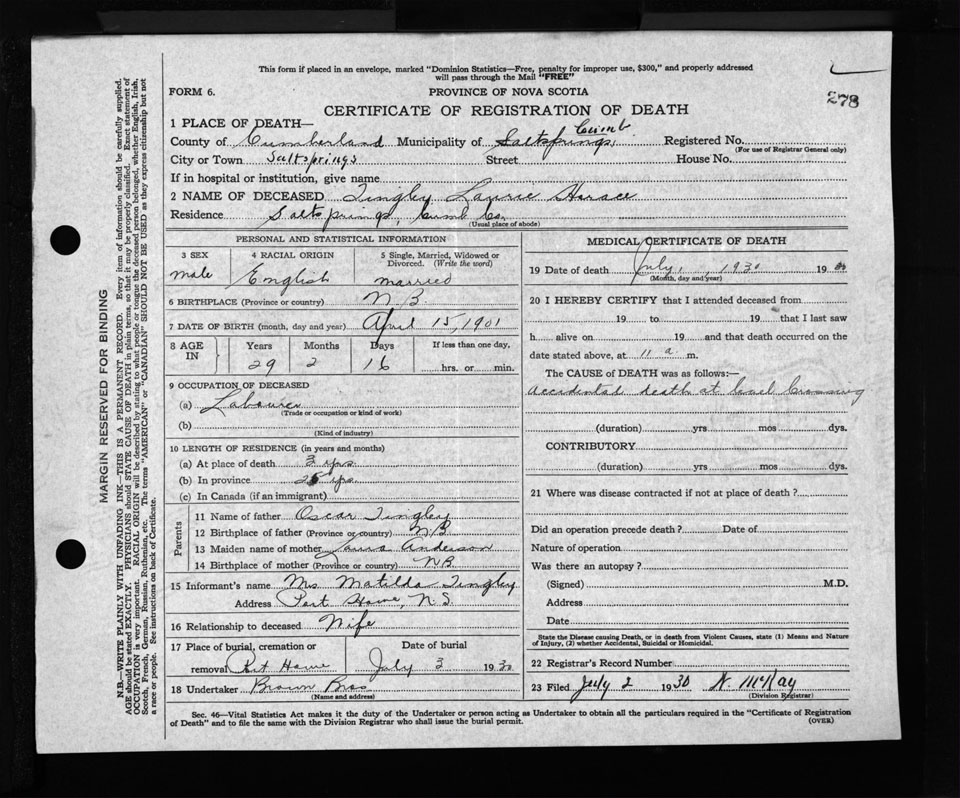 This form if placed in an envelope, marked "Dominion Statistics—Free, penalty for improper use, $300," and properly addressed
will pass through the Mail "FREE"
278
FORM 6.
PROVINCE OF NOVA SCOTIA
CERTIFICATE OF REGISTRATION OF DEATH
1 PLACE OF DEATH—
County of Cumberland Municipality of Saltsprings, Cumb. Registered No.
(For use of Registrar General only)
City or Town Saltsprings Street House No.
If in hospital or institution, give name
2 NAME OF DECEASED Tingley Laurie Horace
Residence Saltsprings, Cumb Co.
(Usual place of abode)
PERSONAL AND STATISTICAL INFORMATION
3 SEX 4 RACIAL ORIGIN 5 Single, Married, Widowed or
Divorced. (Write the word)
male English married
6 BIRTHPLACE (Province or country) N B
7 DATE OF BIRTH (month, day and year) April 15, 1901
8 AGE IN Years Months Days If less than one day,
29 2 16 hrs. or min.
9 OCCUPATION OF DECEASED
(a) Labourer
(Trade or occupation or kind of work)
(b)
(Kind of industry)
10 LENGTH OF RESIDENCE (in years and months)
(a) At place of death 3 yrs
(b) In province yrs.
(c) In Canada (if an immigrant)
Parents
11 Name of father Oscar Tingley
12 Birthplace of father (Province or country) N.B.
13 Maiden name of mother Anderson
14 Birthplace of mother (Province or country) N.B.
15 Informant's name Mrs Matilda Tingley
Address Port Howe, N.S.
16 Relationship to deceased Wife
17 Place of burial, cremation or Date of burial
removal Port Howe July 3 1930
18 Undertaker Brown Bros
(Name and address)
MEDICAL CERTIFICATE OF DEATH
19 Date of death July 1, 1930 19
(Month, day and year)
20 I HEREBY CERTIFY that I attended deceased from
19 to 19 that I last saw
h alive on 19 and that death occurred on the
date stated above, at 11 a m.
The CAUSE of DEATH was as follows:—
Accidental death at level Crossing
(duration) yrs mos dys.
CONTRIBUTORY
(duration) yrs mos dys.
21 Where was disease contracted if not at place of death?
Did an operation precede death? Date of
Nature of operation
Was there an autopsy?
(Signed) M.D.
Address
Date
State the Disease causing Death, or in death from Violent Causes, state (1) Means and Nature
of Injury, (2) whether Accidental, Suicidal or Homicidal.
22 Registrar's Record Number
23 Filed July 2 1930 N. McKay
(Division Registrar)
Sec. 46—Vital Statistics Act makes it the duty of the Undertaker or person acting as Undertaker to obtain all the particulars required in the "Certificate of Registration
of Death" and to file the same with the Division Registrar who shall issue the burial permit.
(OVER)
MARGIN RESERVED FOR BINDING
N.B.—WRITE PLAINLY WITH UNFADING INK—THIS IS A PERMANENT RECORD. Every item of information should be carefully supplied.
AGE should be stated EXACTLY. PHYSICIANS should STATE CAUSE OF DEATH in plain terms, so that it may be properly classified. Exact statement of
OCCUPATION is very important. RACIAL ORIGIN will be described by stating to what people or tongue the deceased person belonged, whether English, Irish,
Scotch, French, German, Russian, Ruthenian, etc. The terms "AMERICAN" or "CANADIAN" SHOULD NOT BE USED as they express citizenship but not
a race or people. See instructions on back of Certificate.